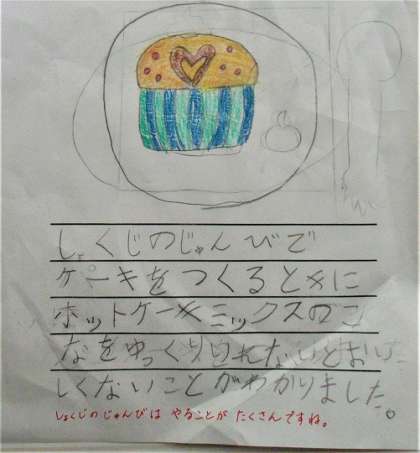 しょくじのじゅんびで
ケーキをつくるときに
ホットケーキミックスのこ
なをゆっくりいれないとおいし
しくないことがわかりました。
しょくじのじゅんびは やることが たくさんですね。